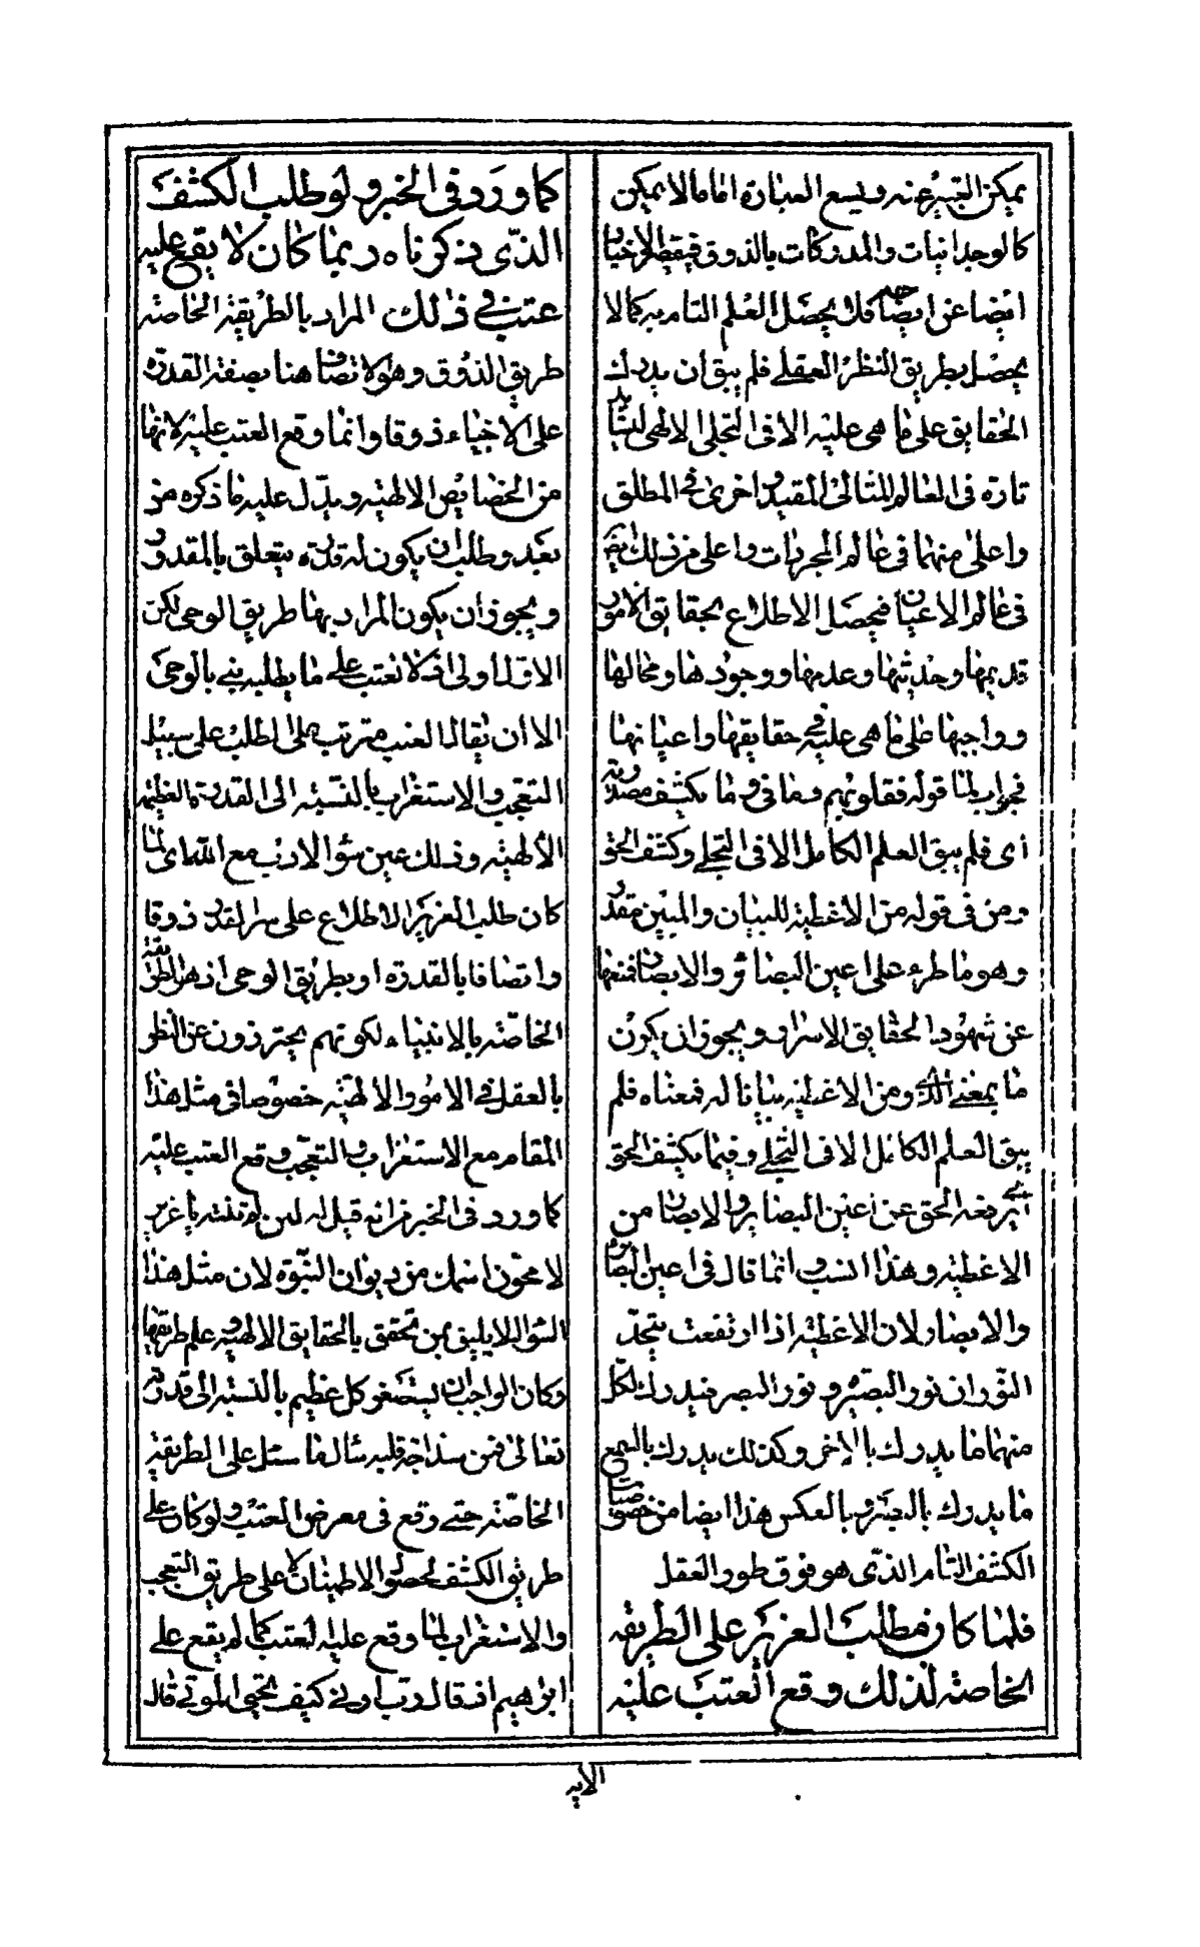 يمكن التعبير عنه ويسع العبارة اما ما لا يمكن
كالوجدانيات والمدركات بالذوق فيقصر الاخبار
ايضا عن ايضاحه فلا يحصل العلم التام به كما لا
يحصل بطريق النظر العقلى فلم يبق ان يدرك
الحقايق على ما هى عليه الا فى التجلى الالهى ليشاهد
تارة فى العالم المثالى المقيد واخرى فى المطلق
واعلى منهما فى عالم المجردات واعلى من ذلك
فى عالم الاعيان فيحصل الاطلاع بحقايق الامور
قديمها وحديثها وعدمها ووجودها ومحالها
وواجبها على ما هى عليه فى حقايقها واعيانها
فجواب لما قوله فقلوبهم وما فى وما يكشف مصدرية
اى فلم يبق العلم الكامل الا فى التجلى وكشف الحق
ومن فى قوله من الاغطية للبيان والمبين مقدر
وهو ما طرء على اعين البصائر والابصار فمنعها
عن شهود الحقايق الاسرار ويجوز ان يكون
ما بمعنى الذى ومن الاغطية بيانا له فمعناه فلم
يبق العلم الكامل الا فى التجلى وفيما يكشف الحق
اى يرفعه الحق عن اعين البصاير والابصار من
الاغطية وهذا انسب وانما قال فى اعين البصائر
والابصار لان الاغطية اذا ارتفعت يتحد
النوران نور البصيرة ونور البصر فيدرك لكل
منهما ما يدرك بالاخر وكذلك يدرك بالسمع
ما يدرك بالبصر وبالعكس هذا ايضا من خصوصيات
الكشف التام الذى هو فوق طور العقل
فلما كان مطلب العزير على الطريقه
الخاصه لذلك وقع العتب عليه
كما ورد فى الخبر ولو طلب الكشف
الذى ذكرناه ربما كان لا يقع عليه
عتب فى ذلك المراد بالطريقة الخاصة
طريق الذوق وهو الاتصاف هنا بصفة القدرة
على الاحياء ذوقا وانما وقع العتب عليه لانها
من الخصايص الالهية ويدل عليه ما ذكره من
بعد وطلب ان يكون له قدرة يتعلق بالمقدور
ويجوز ان يكون المراد بها طريق الوحى لكن
الاول اولى اذ لا نعتب على ما يطلبه نبى بالوحى
الا ان يقال العتب مترتب على الطلب على سبيل
التعجب والاستغراب بالنسبة الى القدرة العظيمة
الالهية وذلك عين سوء الادب مع الله اى لما
كان طلب العزير الاطلاع على سر القدر ذوقا
واتصافا بالقدرة او بطريق الوحى اذ هو الطريقة
الخاصة بالانبياء لكونهم يحترزون عن النظر
بالعقل فى الامور الالهية خصوصا فى مثل هذا
المقام مع الاستغراب والتعجب وقع العتب عليه
كما ورد فى الخبر من انه قيل له لئن لم تنته يا عزير
لامحون اسمك من ديوان النبوة لان مثل هذا
السؤال لا يليق بمن تحقق بالحقايق الالهية وعلم طريقها
وكان الواجب ان يستصغر كل عظيم بالنسبة الى قدرته
تعالى فمن سذاجة قلبه سال ما سئل على الطريقة
الخاصة حتى وقع فى معرض العتب ولو كان على
طريق الكشف لحصول الاطمينان لا على طريق التعجب
والاستغراب لما وقع عليه العتب كما لم يقع على
ابراهيم اذ قال رب ارنى كيف تحيى الموتى قال
الايه